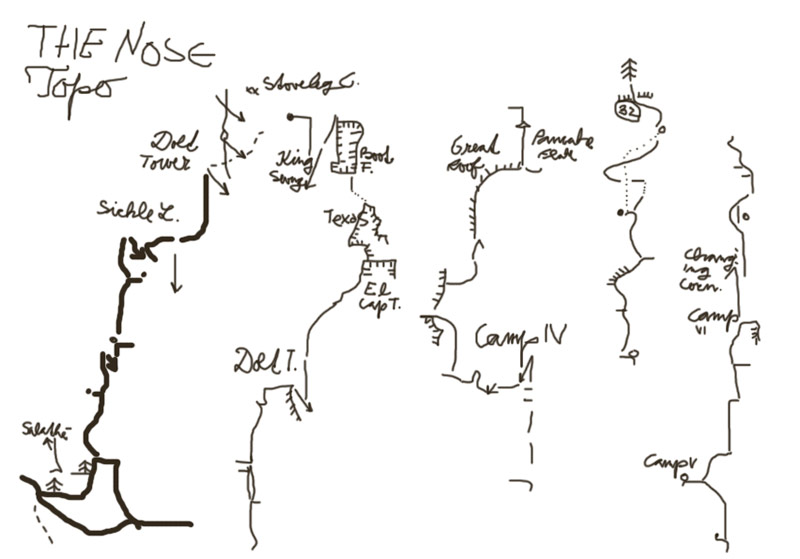 THE NOSE
Topo
xx Stoveleg C.
Dolt
Tower
King
Swing
Boot
F.
Great
Roof
Pancake
32
Sickle L.
Texas
El
Cap T.
Chang
ing
Corn.
Camp
VI
Camp IV
Dolt T.
Salathé
Camp V